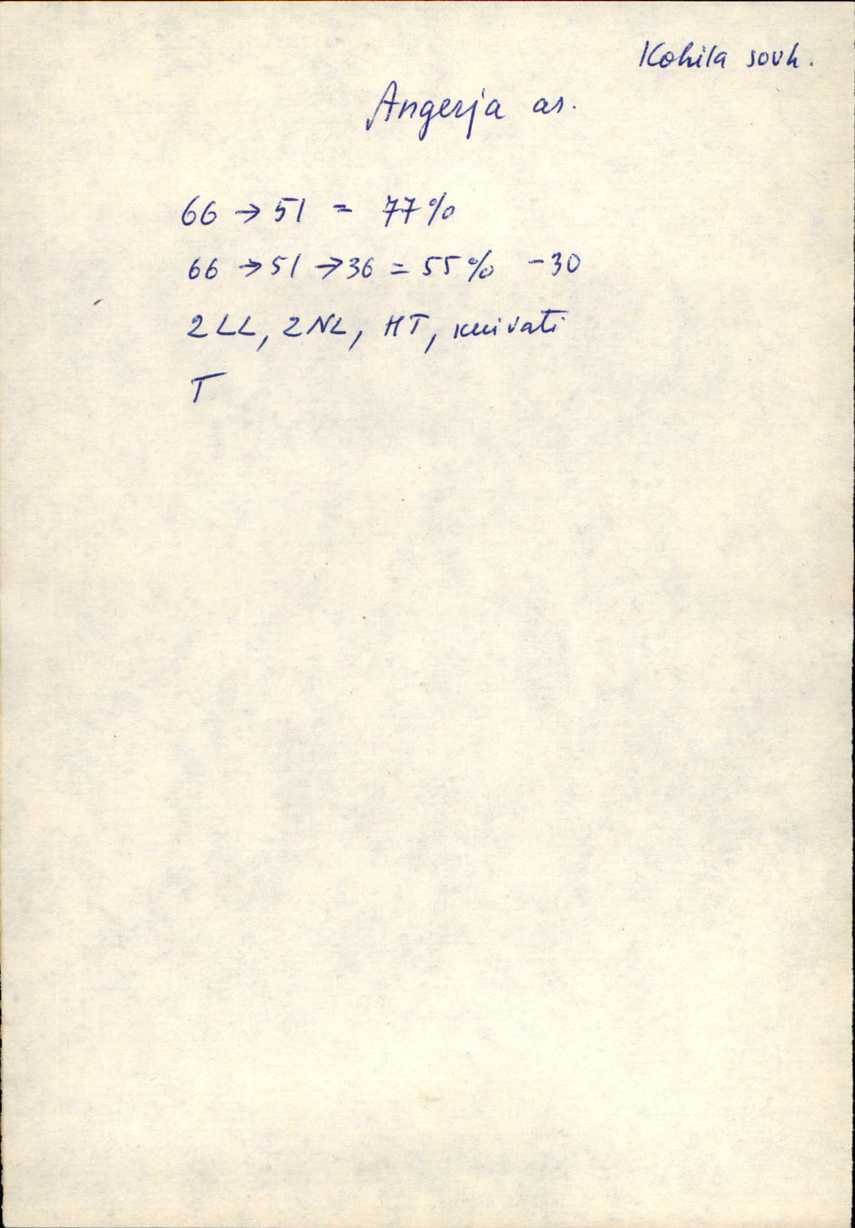 Kohila sovh.
Angerja as.
66 → 51 = 77%
66 → 51 → 36 = 55% -30
2LL, 2NL, HT, kuivati
T